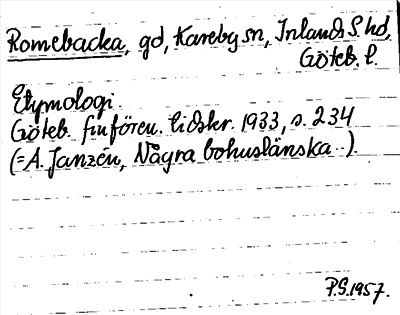 Romebacka, gd, Kareby sn, Inlands S. hd,
Göteb. l.
Etymologi.
Göteb. fmfören. tidskr. 1933, s. 234
(= A. Janzén, Några bohuslänska..)
P.S. 1957.